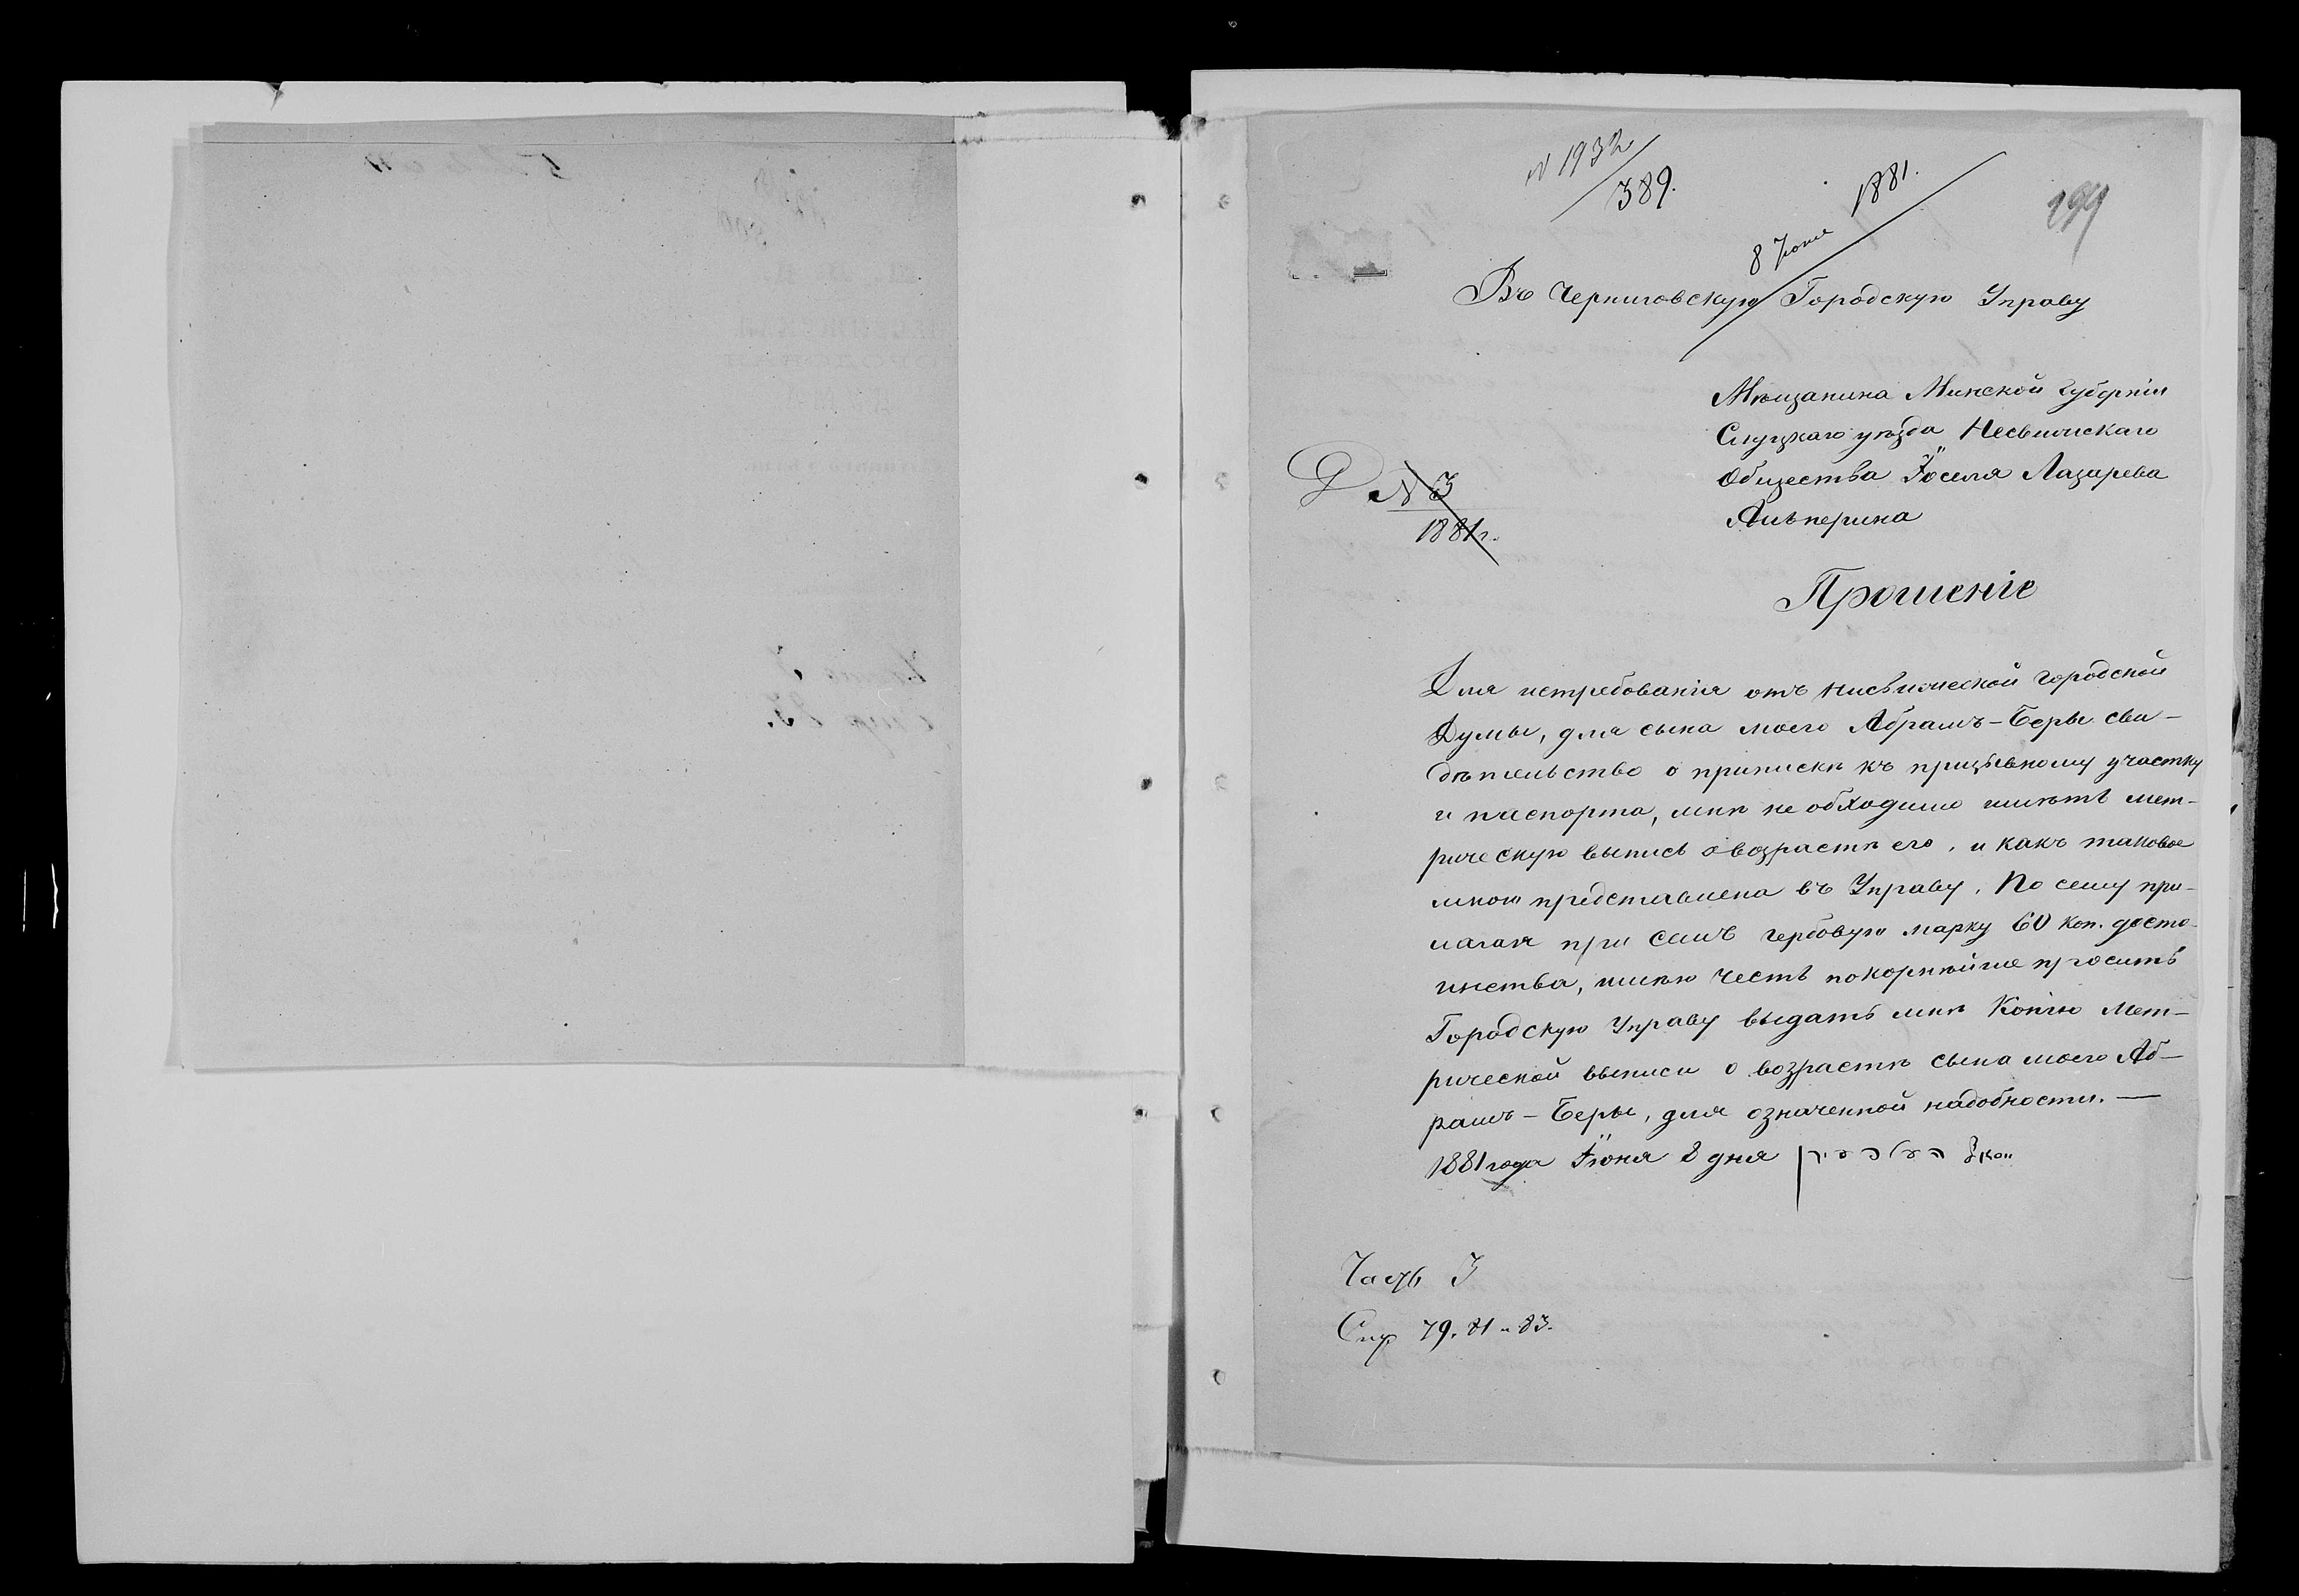 № 1932
389.
8 Іюня 1881.
Въ Черниговскую Городскую Управу
Мѣщанина Минской губерніи
Слуцкаго уѣзда Несвижскаго
Общества Іоселя Лазарева
Альперина
Д № 3
1881 г.
Прошеніе
Для истребованія отъ Нисвижеской городской
Думы, для сына моего Абрамъ-Беры сви-
дѣтельство о припискѣ къ призывному участку
и паспорта, мнѣ необходимо имѣть мет-
рическую выпись о возрастѣ его, и какъ таковое
мною представлена въ Управу. По сему при-
лагая при семъ гербовую марку 60 коп. досто-
инства, имѣю честь покорнѣйше просить
Городскую Управу выдать мнѣ Копію мет-
рической выписи о возрастѣ сына моего Аб-
рамъ-Беры, для означенной надобности. —
1881 года Іюня 8 дня
Часть I
Стр 79. 81 и 83.